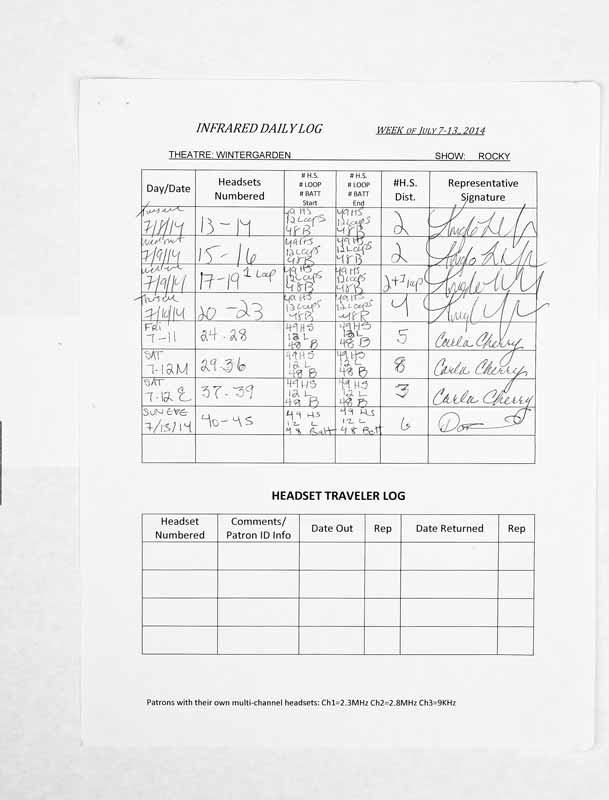 INFRARED DAILY LOG WEEK OF JULY 7-13, 2014
THEATRE: WINTERGARDEN SHOW: ROCKY
Day/Date Headsets Numbered # H.S. # LOOP # BATT Start # H.S. # LOOP # BATT End #H.S. Dist. Representative Signature
7/8/14 13-14 49HS 12 Loops 48B 49HS 12 Loops 48B 2
7/9/14 15-16 49HS 12 Loops 48B 49HS 12 Loops 48B 2
7/9/14 17-19 1 Loop 49HS 12 Loops 48B 49HS 12 Loops 48B 2+1 loop
7/10/14 20-23 49HS 12 Loops 48B 49HS 12 Loops 48B 4
FRI 7-11 24-28 49HS 12 L 48 B 49HS 12 L 48 B 5 Carla Cherry
SAT 7-12M 29-36 49HS 12 L 48 B 49HS 12 L 48 B 8 Carla Cherry
SAT 7-12 E 37-39 49HS 12 L 48 B 49HS 12 L 48 B 3 Carla Cherry
SUN EVE 7/13/14 40-45 49 HS 12 L 48 Batt 49 HS 12 L 48 Batt 6
HEADSET TRAVELER LOG
Headset Numbered Comments/ Patron ID Info Date Out Rep Date Returned Rep
Patrons with their own multi-channel headsets: Ch1=2.3MHz Ch2=2.8MHz Ch3=9KHz